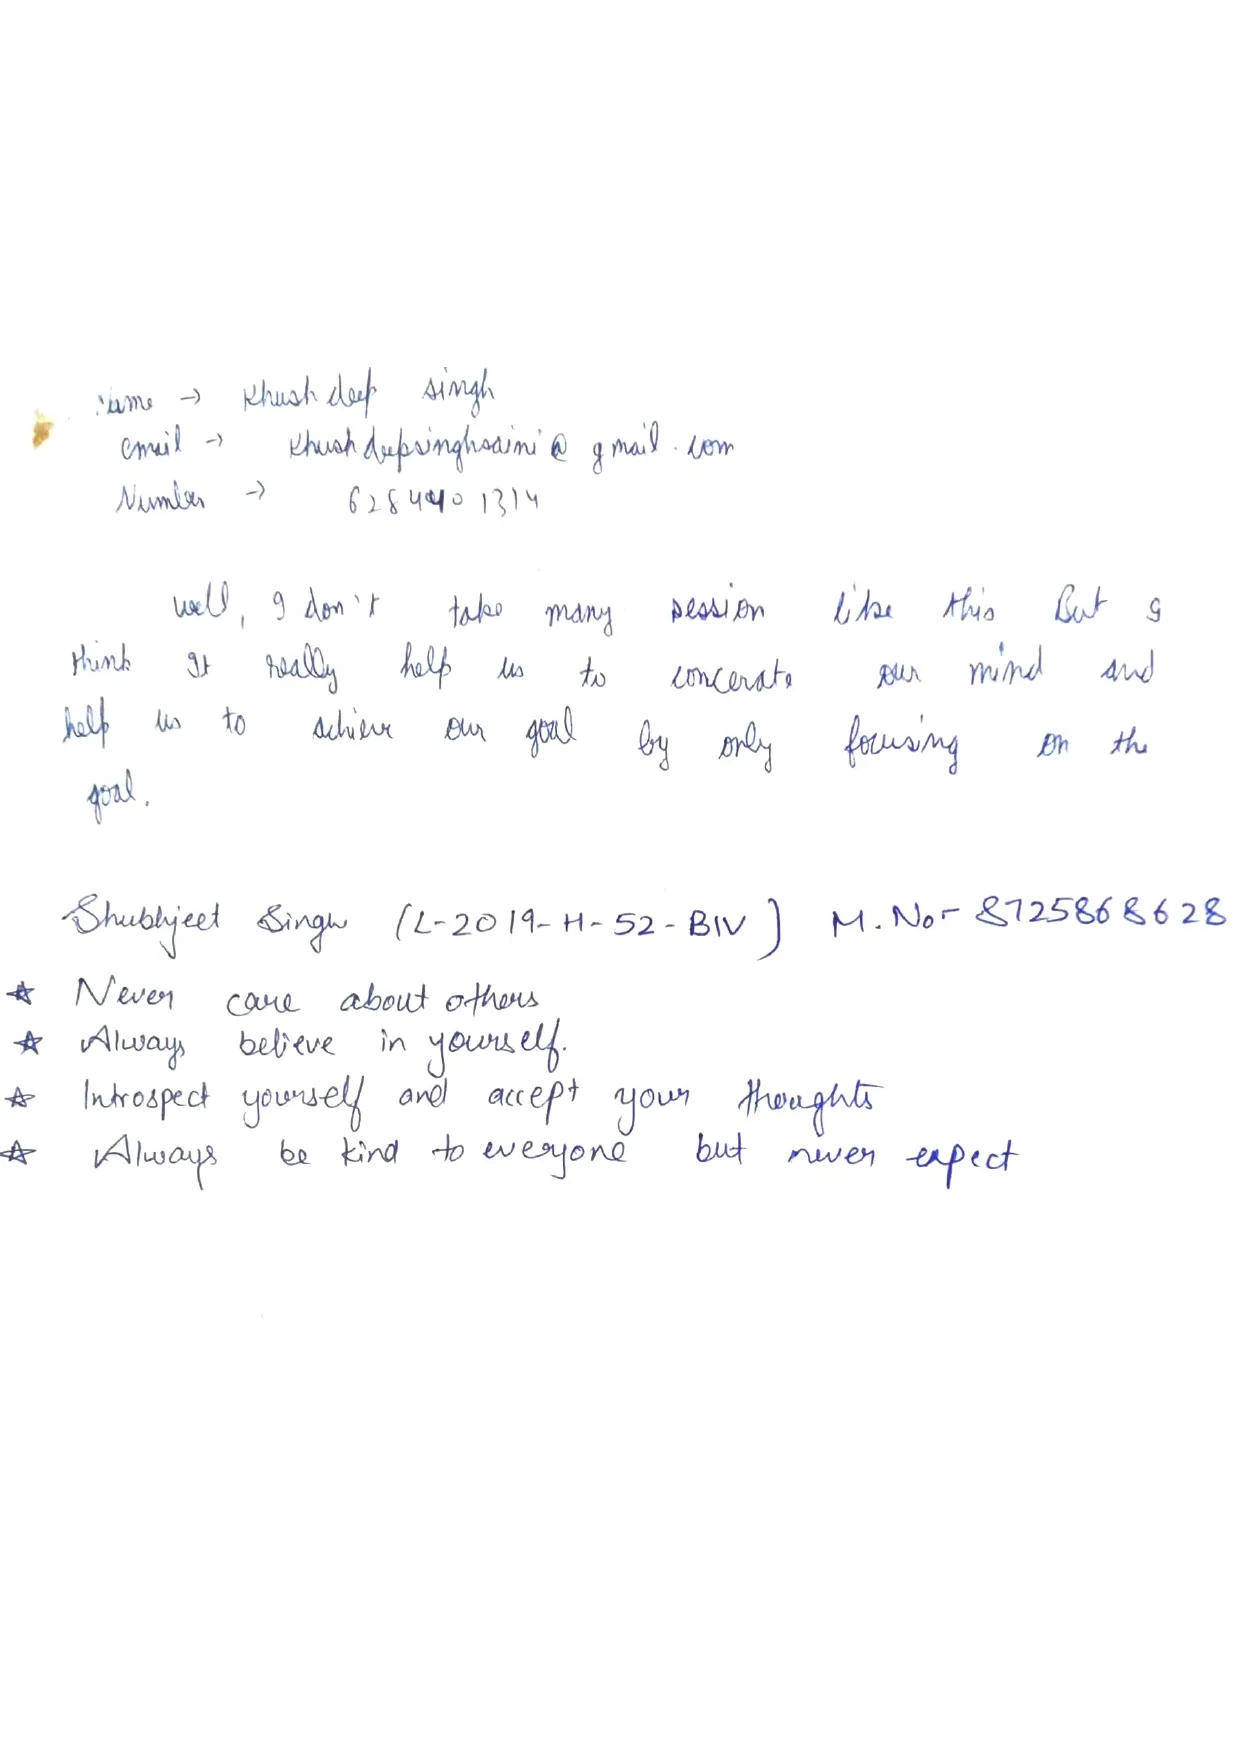 Name → Khushdeep singh
email → khushdeepsinghsaini@gmail.com
Number → 6284401314
well, I don't take many session like this But I
think It really help us to concerate our mind and
help us to achieve our goal by only focusing on the
goal.
Shubhjeet Singh (L-2019-H-52-BIV) M.No- 8725868628
☆ Never care about others
☆ Always believe in yourself.
☆ Introspect yourself and accept your thoughts
☆ Always be kind to everyone but never expect